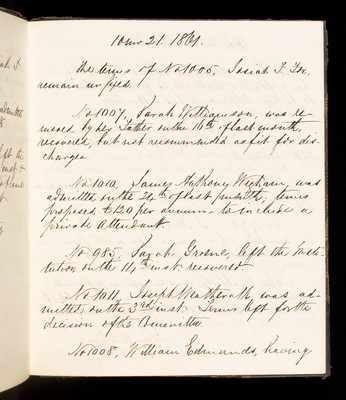 10 mo 21. 1861.
The terms of No 1005, Josiah F. Fox,
remain unfixed.
No 1007, Sarah Williamson, was re-
moved by her Father on the 16th of last month,
recovered, but not recommended as fit for dis-
charge.
No 1010, James Anthony Wigham, was
admitted on the 24th of last month; terms
proposed £120 per annum to include a
private Attendant.
No 985, Sarah Greene, left the Insti-
tution on the 14th inst. recovered.
No 1011, Joseph Weatherald, was ad-
mitted on the 3rd inst. Terms left for the
decision of the Committee.
No 1008, William Edmunds, having